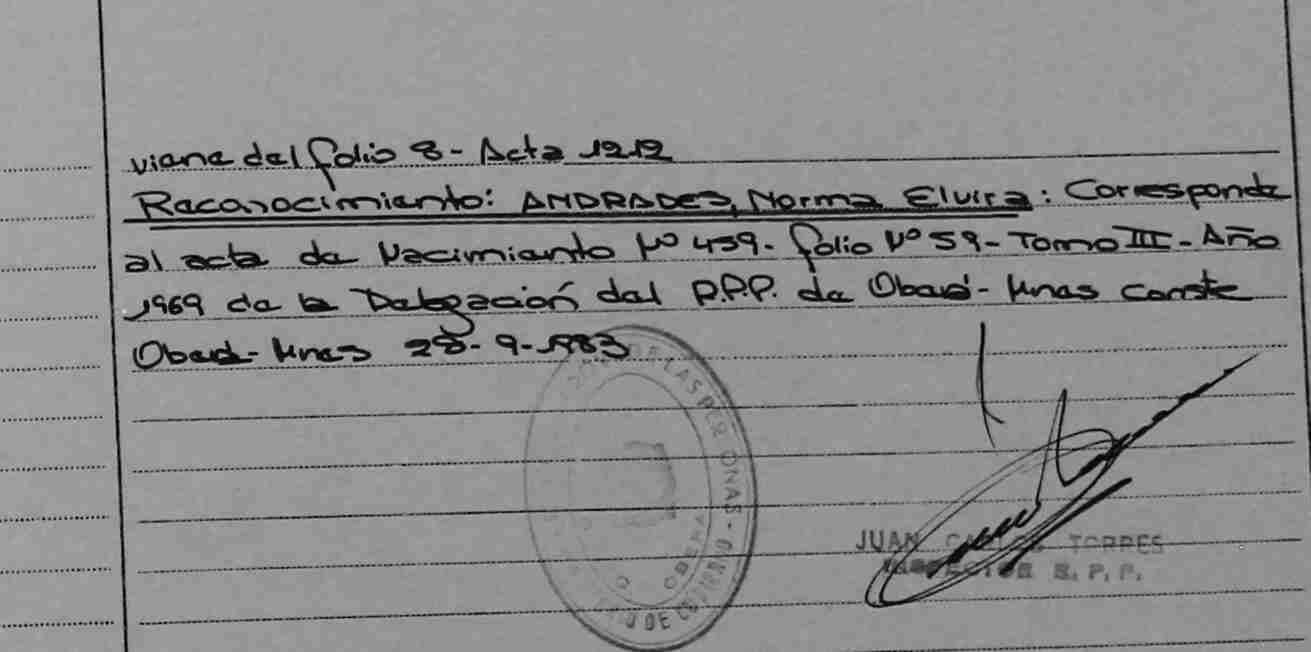 viene del folio 8- Acta 1212
Reconocimiento: ANDRADES, Norma Elvira: Corresponde
al acta de Nacimiento Nº 459- folio Nº 59- Tomo III - Año
1969 de la Delegación del R.P.P. de Oberá- Mnes Conste
Oberá- Mnes 28-9-1983
LAS PER ONAS -
OBERA
JUAN CARLOS TORRES
INSPECTOR R. P. P.